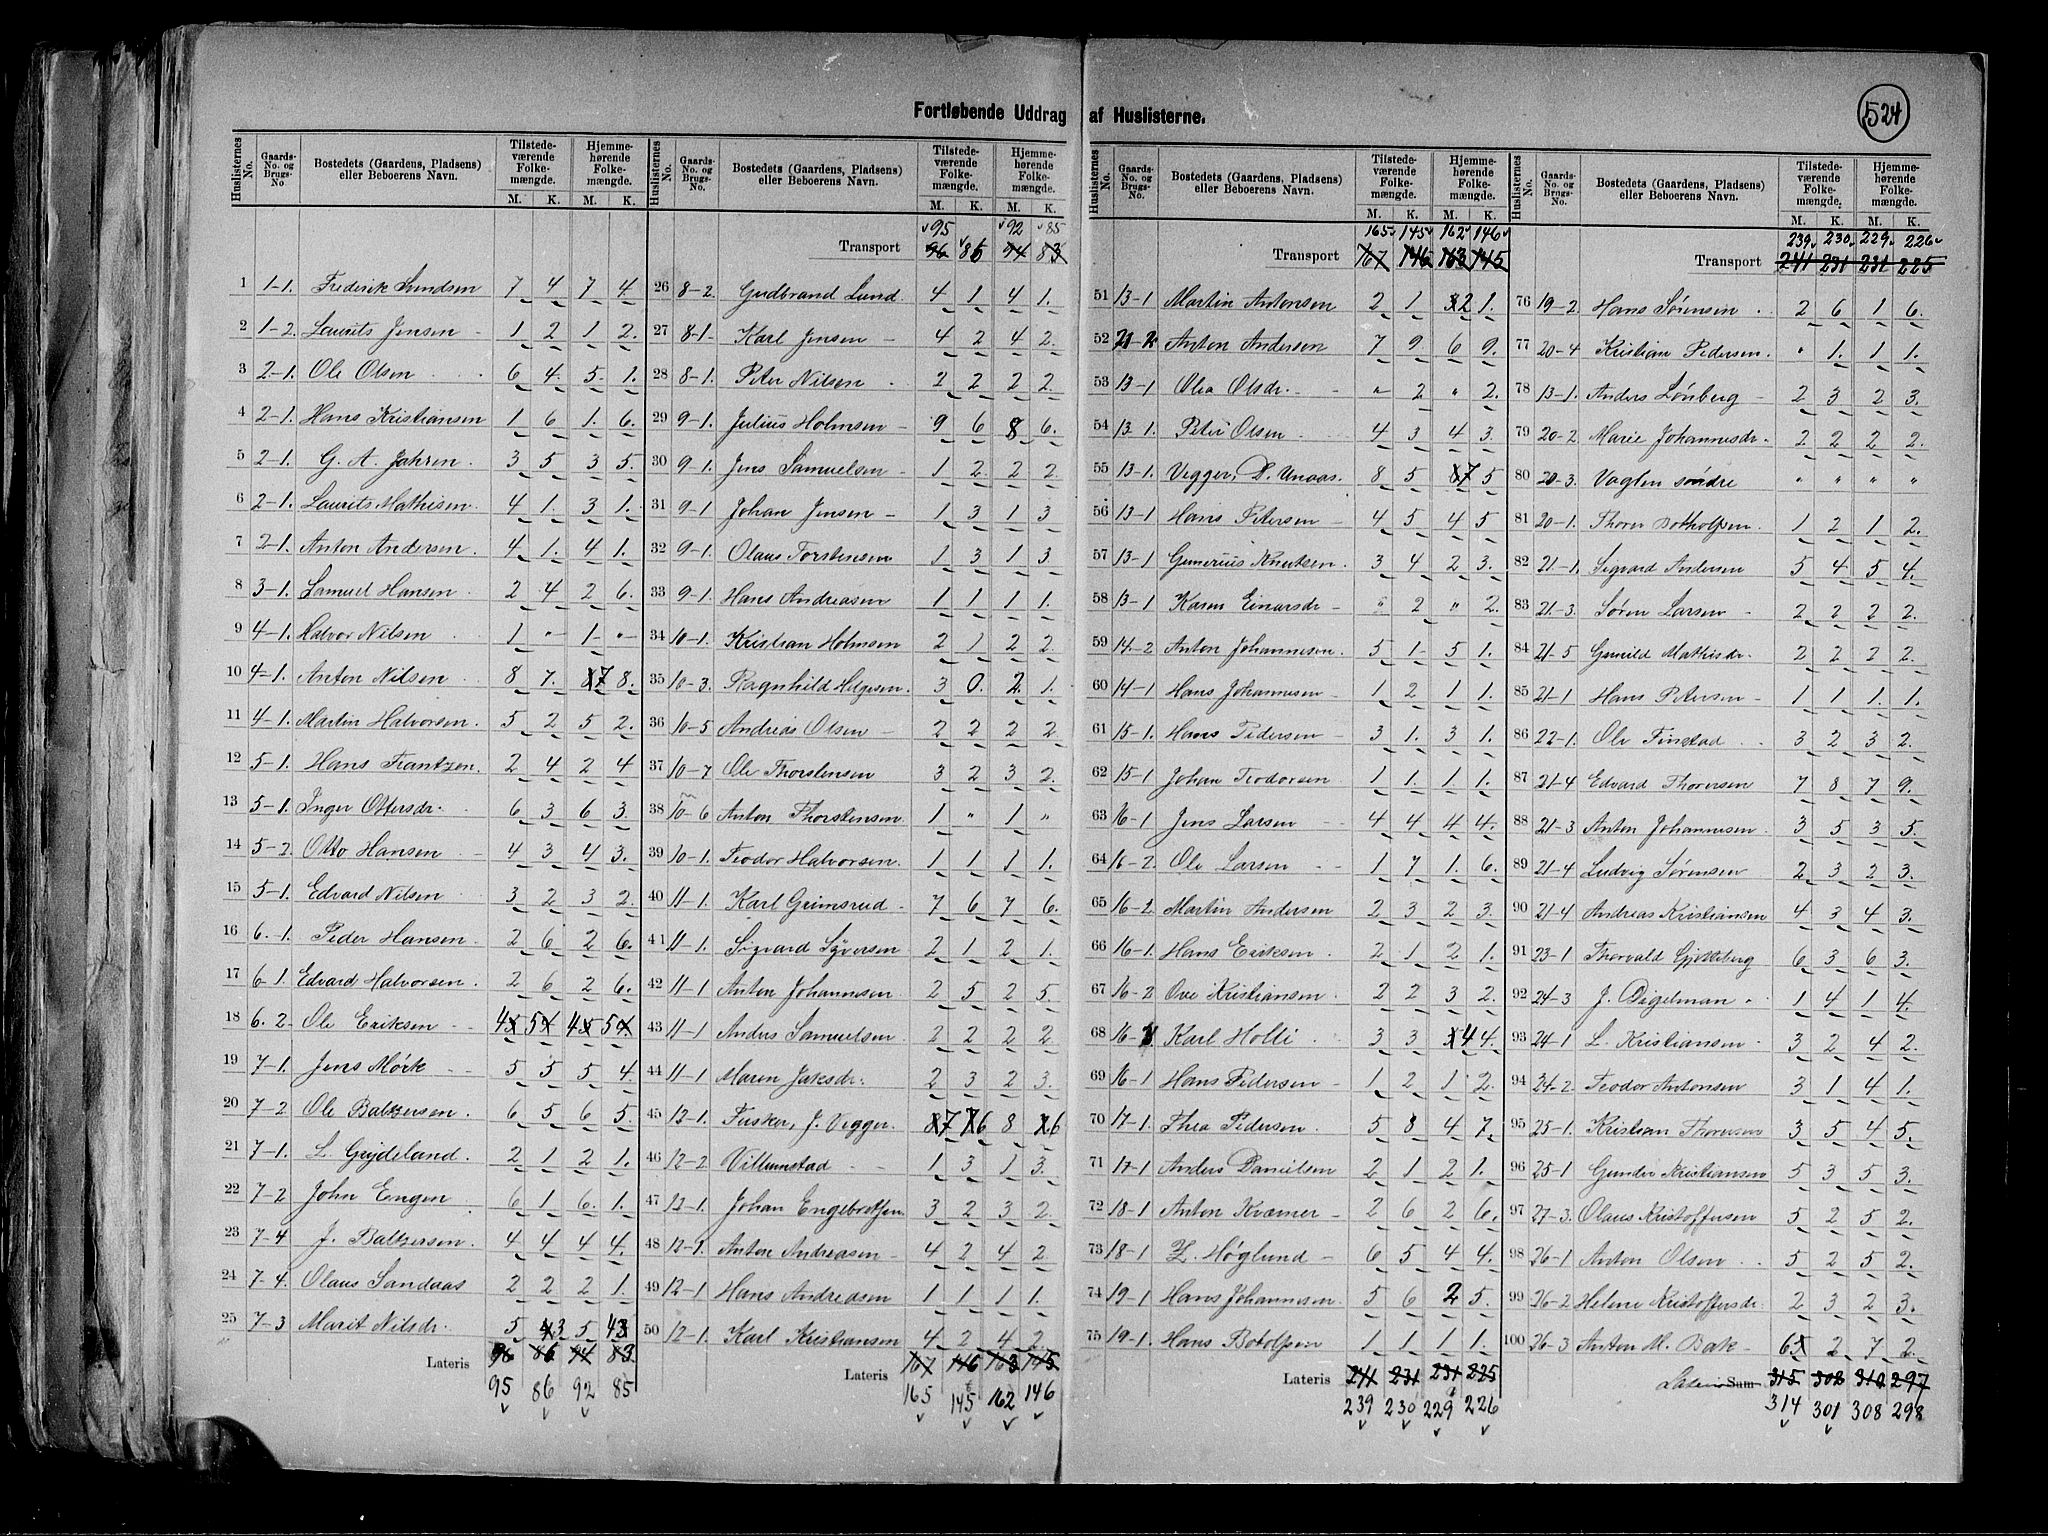 Fortløbende Uddrag af Huslisterne.
524
Huslisternes No. Gaards-No. og Brugs-No Bostedets (Gaardens, Pladsens) eller Beboerens Navn. Tilstedeværende Folkemængde. M. K. Hjemmehørende Folkemængde. M. K.
1 1-1. Frederik Svendsen 7 4 7 4
2 1-2. Laurits Jensen 1 2 1 2.
3 2-1. Ole Olsen 6 4 5. 1.
4 2-1. Hans Kristiansen 1 6 1. 6.
5 2-1. G. A. Jahren. 3 5 3 5.
6 2-1. Laurits Mathisen. 4 1. 3 1.
7 2-1. Anton Andersen. 4 1. 4 1.
8 3-1. Samuel Hansen. 2 4 2 6.
9 4-1. Halvor Nilsen 1 " 1 "
10 4-1. Anton Nilsen 8 7. 7 8.
11 4-1. Martin Halvorsen. 5 2 5 2.
12 5-1. Hans Frantzen. 2 4 2 4
13 5-1. Inger Ottersdr. 6 3 6 3.
14 5-2. Otto Hansen 4 3 4 3.
15 5-1. Edvard Nilsen 3 2 3 2.
16 6.-1. Peder Hansen. 2 6 2 6.
17 6-1. Edvard Halvorsen. 2 6 2 6.
18 6.2. Ole Eriksen 4 5 4 5
19 7-1. Jens Mörk 5 5 5 4
20 7-2 Ole Baltzersen. 6 5 6 5.
21 7-1. L. Gujdeland. 2 1 2 1.
22 7-2 John Engen 6 1 6. 1.
23 7-4 J. Baltzersen. 4 4 4 4.
24 7-4. Olaus Sandaas 2 2 2 1.
25 7-3 Marit Nilsdr. 5 3 5 3
Lateris 96 86 94 83
95 86 92 85
Huslisternes No. Gaards-No. og Brugs-No. Bostedets (Gaardens, Pladsens) eller Beboerens Navn. Tilstedeværende Folkemængde. M. K. Hjemmehørende Folkemængde. M. K.
95 92 85
Transport 96 86 94 83
26 8-2. Gudbrand Lund. 4 1 4 1.
27 8-1. Karl Jensen 4 2 4 2.
28 8-1. Peter Nilsen 2 2 2 2.
29 9-1. Julius Holmsen 9 6 8 6.
30 9-1. Jens Samuelsen 1 2 2 2
31 9-1 Johan Jensen 1 3 1 3
32 9-1. Olaus Torstensen 1 3 1 3
33 9-1. Hans Andreasen 1 1 1 1.
34 10-1. Kristian Holmsen 2 1 2 2.
35 10-3. Ragnhild Helgesen. 3 0. 2 1.
36 10-5 Andreas Olsen 2 2 2 2
37 10-7 Ole Thorstensen 3 2 3 2.
38 10-6 Anton Thorstensen 1 " 1 "
39 10-1. Teodor Halvorsen. 1 1 1 1.
40 11-1. Karl Grimsrud 7 6 7 6.
41 11-1. Sigvard Syversen 2 1 2 1.
42 11-1 Anton Johannesen 2 5 2 5.
43 11-1 Anders Samuelsen 2 2 2 2
44 11-1 Maren Jaksdr. 2 3 2 3.
45 12-1. Fusker, J. Vegger. 7 6 8 6
46 12-2 Villumstad 1 3 1 3.
47 12-1. Johan Engebretsen. 3 2 3 2.
48 12-1. Anton Andreasen 4 2 4 2
49 12-1 Hans Andreasen 1 1 1 1.
50 12-1. Karl Kristiansen 4 2 4 2.
Lateris 167 146 163 145
165 145 162 146
Huslisternes No. Gaards-No. og Brugs-No. Bostedets (Gaardens, Pladsens) eller Beboerens Navn. Tilstedeværende Folkemængde. M. K. Hjemmehørende Folkemængde. M. K.
165 145 162 146
Transport 167 146 163 145
51 13-1 Martin Antonsen 2 1 2 1.
52 21-2 Anton Andersen 7 9 6 9.
53 13-1 Olea Olsdr. " 2 " 2.
54 13 1. Peter Olsen 4 3 4 3.
55 13-1. Vegger, D. Unaas. 8 5 7 5
56 13-1 Hans Petersen 4 5 4 5
57 13-1 Gunerius Knutsen. 3 4 2 3.
58 13-1 Karen Einarsdr " 2 " 2.
59 14.-2 Anton Johannesen. 5 1 5 1.
60 14-1 Hans Johannesen 1 2 1 1.
61 15-1. Hans Pedersen 3 1. 3 1.
62 15-1 Johan Teodorsen 1 1 1 1.
63 16-1 Jens Larsen 4 4 4 4.
64 16-2. Ole Larsen 1 7 1. 6.
65 16-2 Martin Andersen 2 3 2 3.
66 16-1. Hans Eriksen 2 1 2 1.
67 16-2 Ove Kristiansen. 2 2 3 2.
68 16- Karl Holli 3 3 4 4.
69 16-1 Hans Pedersen 1 2 1 2.
70 17-1. Thea Pedersen. 5 8 4 7.
71 17-1 Anders Danielsen 2 1 2 1.
72 18-1 Anton Kværner 2 6 2 6.
73 18-1 Z. Høglund 6 5 4 4.
74 19-1 Hans Johannesen. 5 6 2 5.
75 19-1. Hans Botolfsen 1 1 1 1.
Lateris 241 231 231 225
239 230 229 226
Huslisternes No. Gaards-No. og Brugs-No. Bostedets (Gaardens, Pladsens) eller Beboerens Navn. Tilstedeværende Folkemængde. M. K. Hjemmehørende Folkemængde. M. K.
239 230 229 226
Transport 241 231 231 225
76 19-2. Hans Sørensen 2 6 1 6.
77 20-4 Kristian Pedersen. " 1. 1 1.
78 13-1. Anders Lönberg 2 3 2 3.
79 20-2. Marie Johannesdr. 2 2 2 2.
80 20-3. Vaglen søndre " " " "
81 20-1. Thorer Botholfsen. 1 2 1 2.
82 21-1. Sigvard Andersen 5 4 5 4.
83 21-3. Søren Larsen 2 2 2 2.
84 21-5 Gunild Mathisdr. 2 2 2 2
85 21-1 Hans Petersen 1 1 1. 1.
86 22-1. Ole Finstad 3 2 3 2.
87 21-4 Edvard Thoresen 7 8 7 9.
88 21-3 Anton Johannesen. 3 5 3 5.
89 21-4 Ludvig Sørensen 2 3 2 3.
90 21-4 Andreas Kristiansen 4 3 4 3.
91 23-1 Thorvald Gjetteberg 6 3 6 3.
92 24-3 J. Digelman 1 4 1 4.
93 24-1 L. Kristiansen 3 2 4 2.
94 24-2 Teodor Antonsen 3 1 4 1.
95 25-1. Kristian Thoresen 3 5 4 5.
96 25-1 Gunder Kristiansen 5 3 5 3.
97 27-3. Olaus Kristoffersen 5 2 5 2.
98 26-1 Anton Olsen 5 2 5 2.
99 26-2 Helene Kristoffersdr. 2 3 2 3.
100 26-3 Anton M. Bak 6 2 7 2.
Lateris Sum 315 302 310 297
314 301 308 298